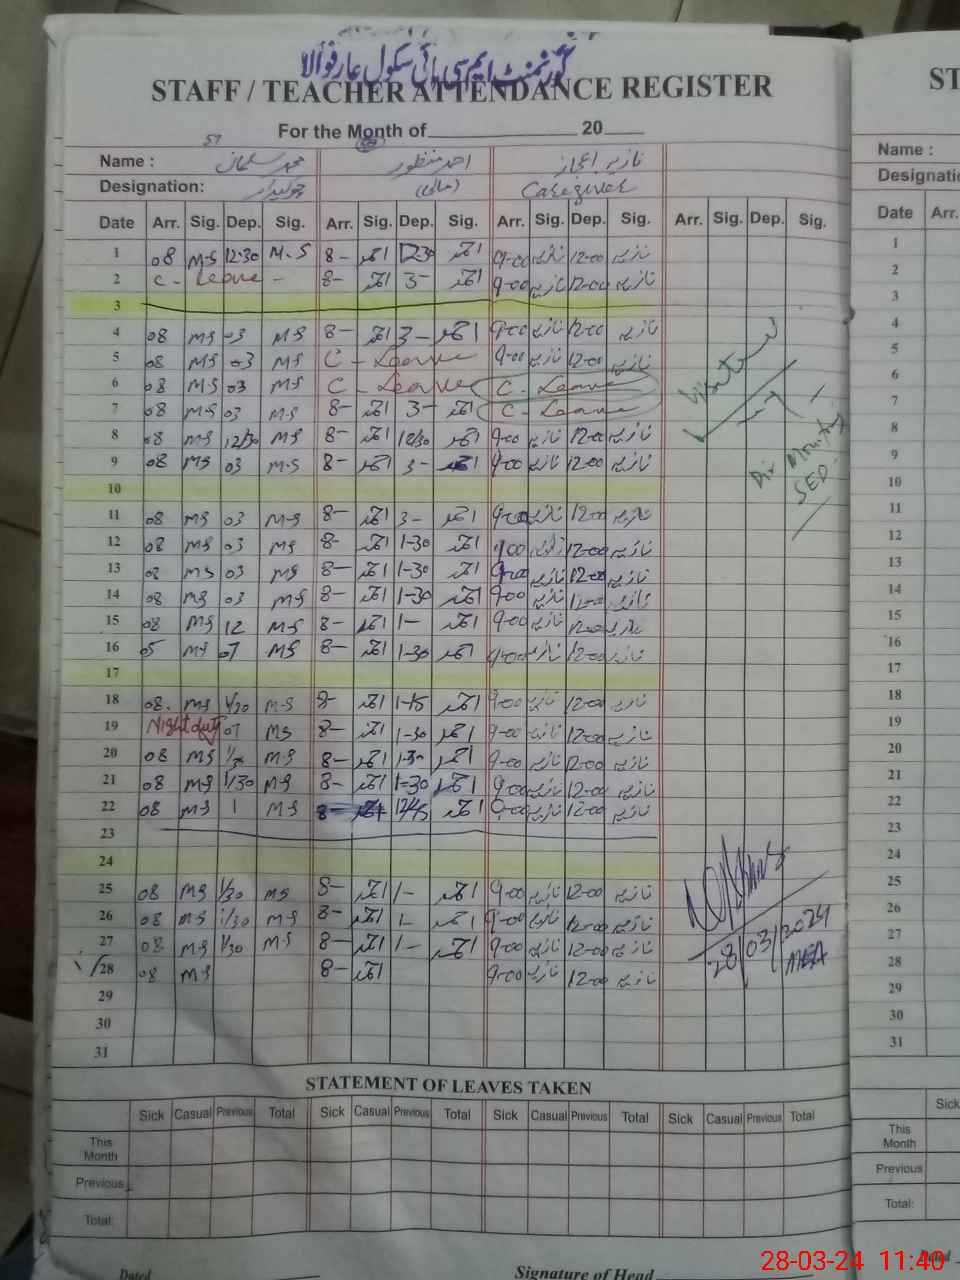 گورنمنٹ ایم سی ہائی سکول عارفوالا
STAFF / TEACHER ATTENDANCE REGISTER
For the Month of 20
Name : محمد سلمان احمد منظور نازیہ اعجاز
Designation: چوکیدار (مالی) Caregiver
Date Arr. Sig. Dep. Sig. Arr. Sig. Dep. Sig. Arr. Sig. Dep. Sig. Arr. Sig. Dep. Sig.
1 08 M-S 12-30 M-S 8- احمد 12-30 احمد 9-00 نازیہ 12-00 نازیہ
2 C - Leave - 8- احمد 3- احمد 9-00 نازیہ 12-00 نازیہ
3
4 08 MS 03 MS 8- احمد 3- احمد 9-00 نازیہ 12-00 نازیہ
5 08 MS 03 MS C - Leave 9-00 نازیہ 12-00 نازیہ
6 08 MS 03 MS C - Leave C - Leave
7 08 M-S 03 M-S 8- احمد 3- احمد C - Leave
8 08 MS 12/30 MS 8- احمد 12/30 احمد 9-00 نازیہ 12-00 نازیہ
9 08 MS 03 M-S 8- احمد 3- احمد 9-00 نازیہ 12-00 نازیہ
10
11 08 MS 03 M-S 8- احمد 3- احمد 9-00 نازیہ 12-00 نازیہ
12 08 MS 03 MS 8- احمد 1-30 احمد 9-00 نازیہ 12-00 نازیہ
13 08 MS 03 MS 8- احمد 1-30 احمد 9-00 نازیہ 12-00 نازیہ
14 08 MS 03 MS 8- احمد 1-30 احمد 9-00 نازیہ 12-00 نازیہ
15 08 MS 12 M-S 8- احمد 1- احمد 9-00 نازیہ 12-00 نازیہ
16 05 MS 07 MS 8- احمد 1-30 احمد 9-00 نازیہ 12-00 نازیہ
17
18 08 MS 1/30 M-S 8- احمد 1-15 احمد 9-00 نازیہ 12-00 نازیہ
19 Night duty 07 MS 8- احمد 1-30 احمد 9-00 نازیہ 12-00 نازیہ
20 08 MS 1/30 M-S 8- احمد 1-30 احمد 9-00 نازیہ 12-00 نازیہ
21 08 MS 1/30 MS 8- احمد 1-30 احمد 9-00 نازیہ 12-00 نازیہ
22 08 MS 1 MS 8- احمد 12/45 احمد 9-00 نازیہ 12-00 نازیہ
23
24
25 08 MS 1/30 MS 8- احمد 1- احمد 9-00 نازیہ 12-00 نازیہ
26 08 MS 1/30 M-S 8- احمد 1- احمد 9-00 نازیہ 12-00 نازیہ
27 08 M-S 1/30 M-S 8- احمد 1- احمد 9-00 نازیہ 12-00 نازیہ
28 08 MS 8- احمد 9-00 نازیہ 12-00 نازیہ
29
30
31
Visited
Dir Monitoring
SED
28/03/2024
MEA
STATEMENT OF LEAVES TAKEN
Sick Casual Previous Total Sick Casual Previous Total Sick Casual Previous Total Sick Casual Previous Total
This Month
Previous
Total:
Dated Signature of Head
ST
Name :
Designatio
Date Arr.
1
2
3
4
5
6
7
8
9
10
11
12
13
14
15
16
17
18
19
20
21
22
23
24
25
26
27
28
29
30
31
Sick
This Month
Previous
Total:
Dated
28-03-24 11:40